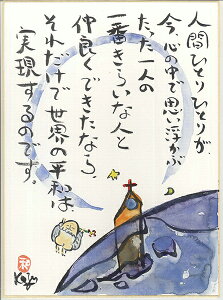 人間ひとりひとりが
今、心の中で思い浮かぶ
たった一人の
一番きらいな人と
仲良くできたなら、
それだけで世界の平和は、
実現するのです。